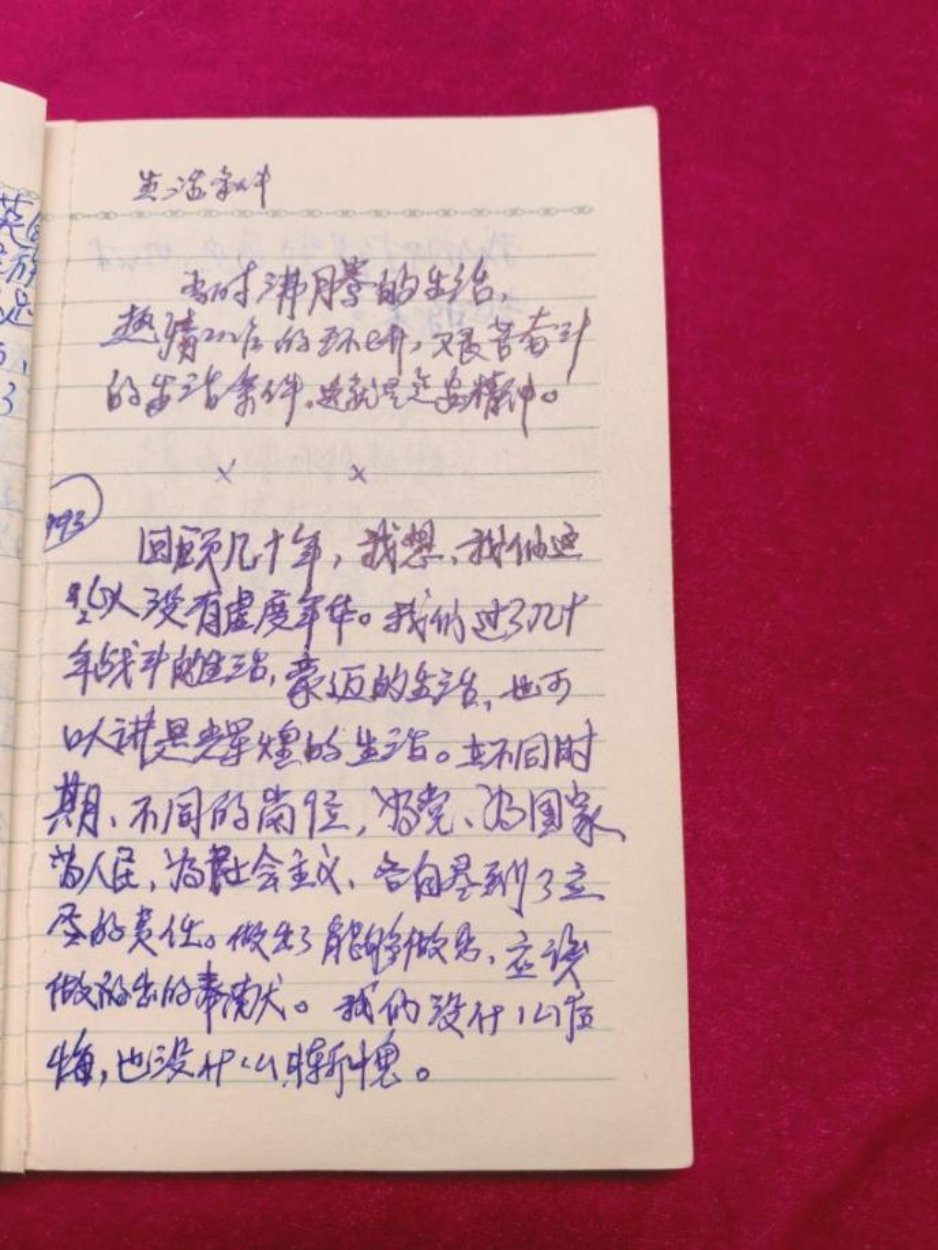 生活条件
当时沸腾的生活,
热情工作的环境,艰苦奋斗
的生活条件,这就是延安精神。
× ×
193
回顾几十年,我想,我们这
些人没有虚度年华。我们过了几十
年战斗的生活,豪迈的生活,也可
以讲是光辉煌的生活。在不同时
期、不同的岗位,为党、为国家、
为人民,为社会主义,各自尽到了应
尽的责任。做出了能够做出、应该
做出的奉献。我们没什么后
悔,也没什么惭愧。
英
3